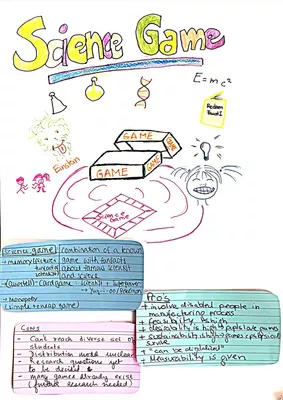 Science Game
E=mc²
Einstein
GAME
GAME
GAME
GAME
Science
Game
Science game
combination of a known
game with funfacts
about famous scientist
and science
→ memory (pictures
(Quartett) - Card game
scientist + superpower
→ Monopoly
(simple → snap game)
Pros
→ involve disabled people in
manufacturing process
→ feasibility is high
→ desirability is high
→ sustainability is high
→ "can be digitalized"
→ Measurability is given
Cons
- Can't reach diverse set of
students
- Distribution model unclear
- Research questions yet
to be decided
- many games already exist
(future research needed)